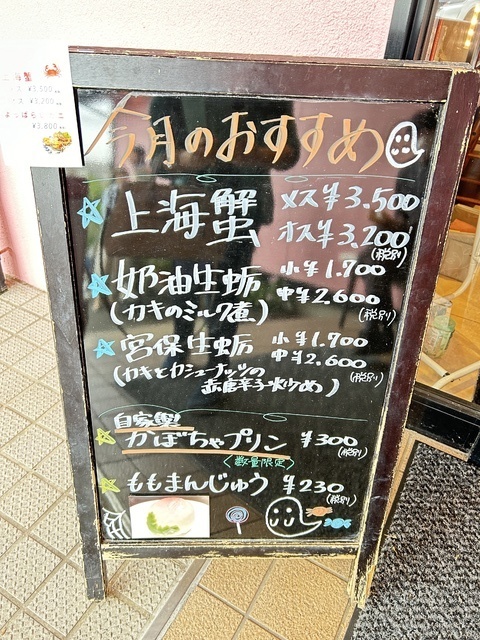 海蟹
¥3,500
ス ¥3,200
¥3,800
今月のおすすめ
上海蟹 メス¥3,500
オス¥3,200
(税別)
奶油生蛎 小¥1,700
(カキのミルク煮) 中¥2,600
(税別)
宮保生蛎 小¥1,700
中¥2,600
(カキとカシューナッツの
赤唐辛子炒め) (税別)
自家製
かぼちゃプリン ¥300
(税別)
<数量限定>
ももまんじゅう ¥230
(税別)